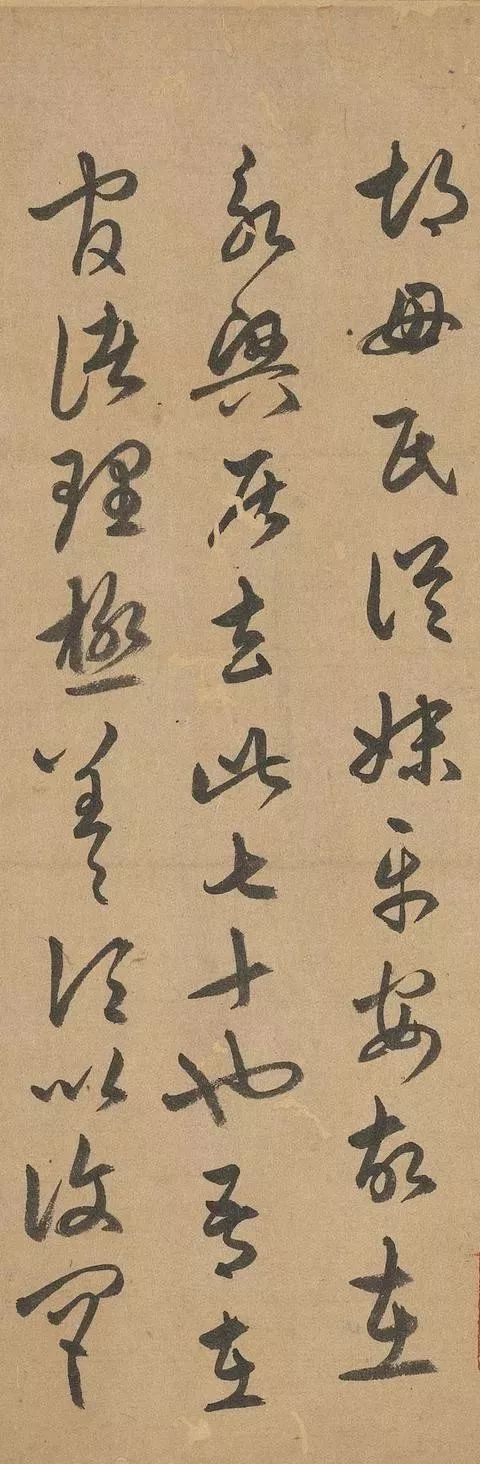 胡母氏從妹平安故在
永興居去此七十也吾在
官諸理極差頃比復